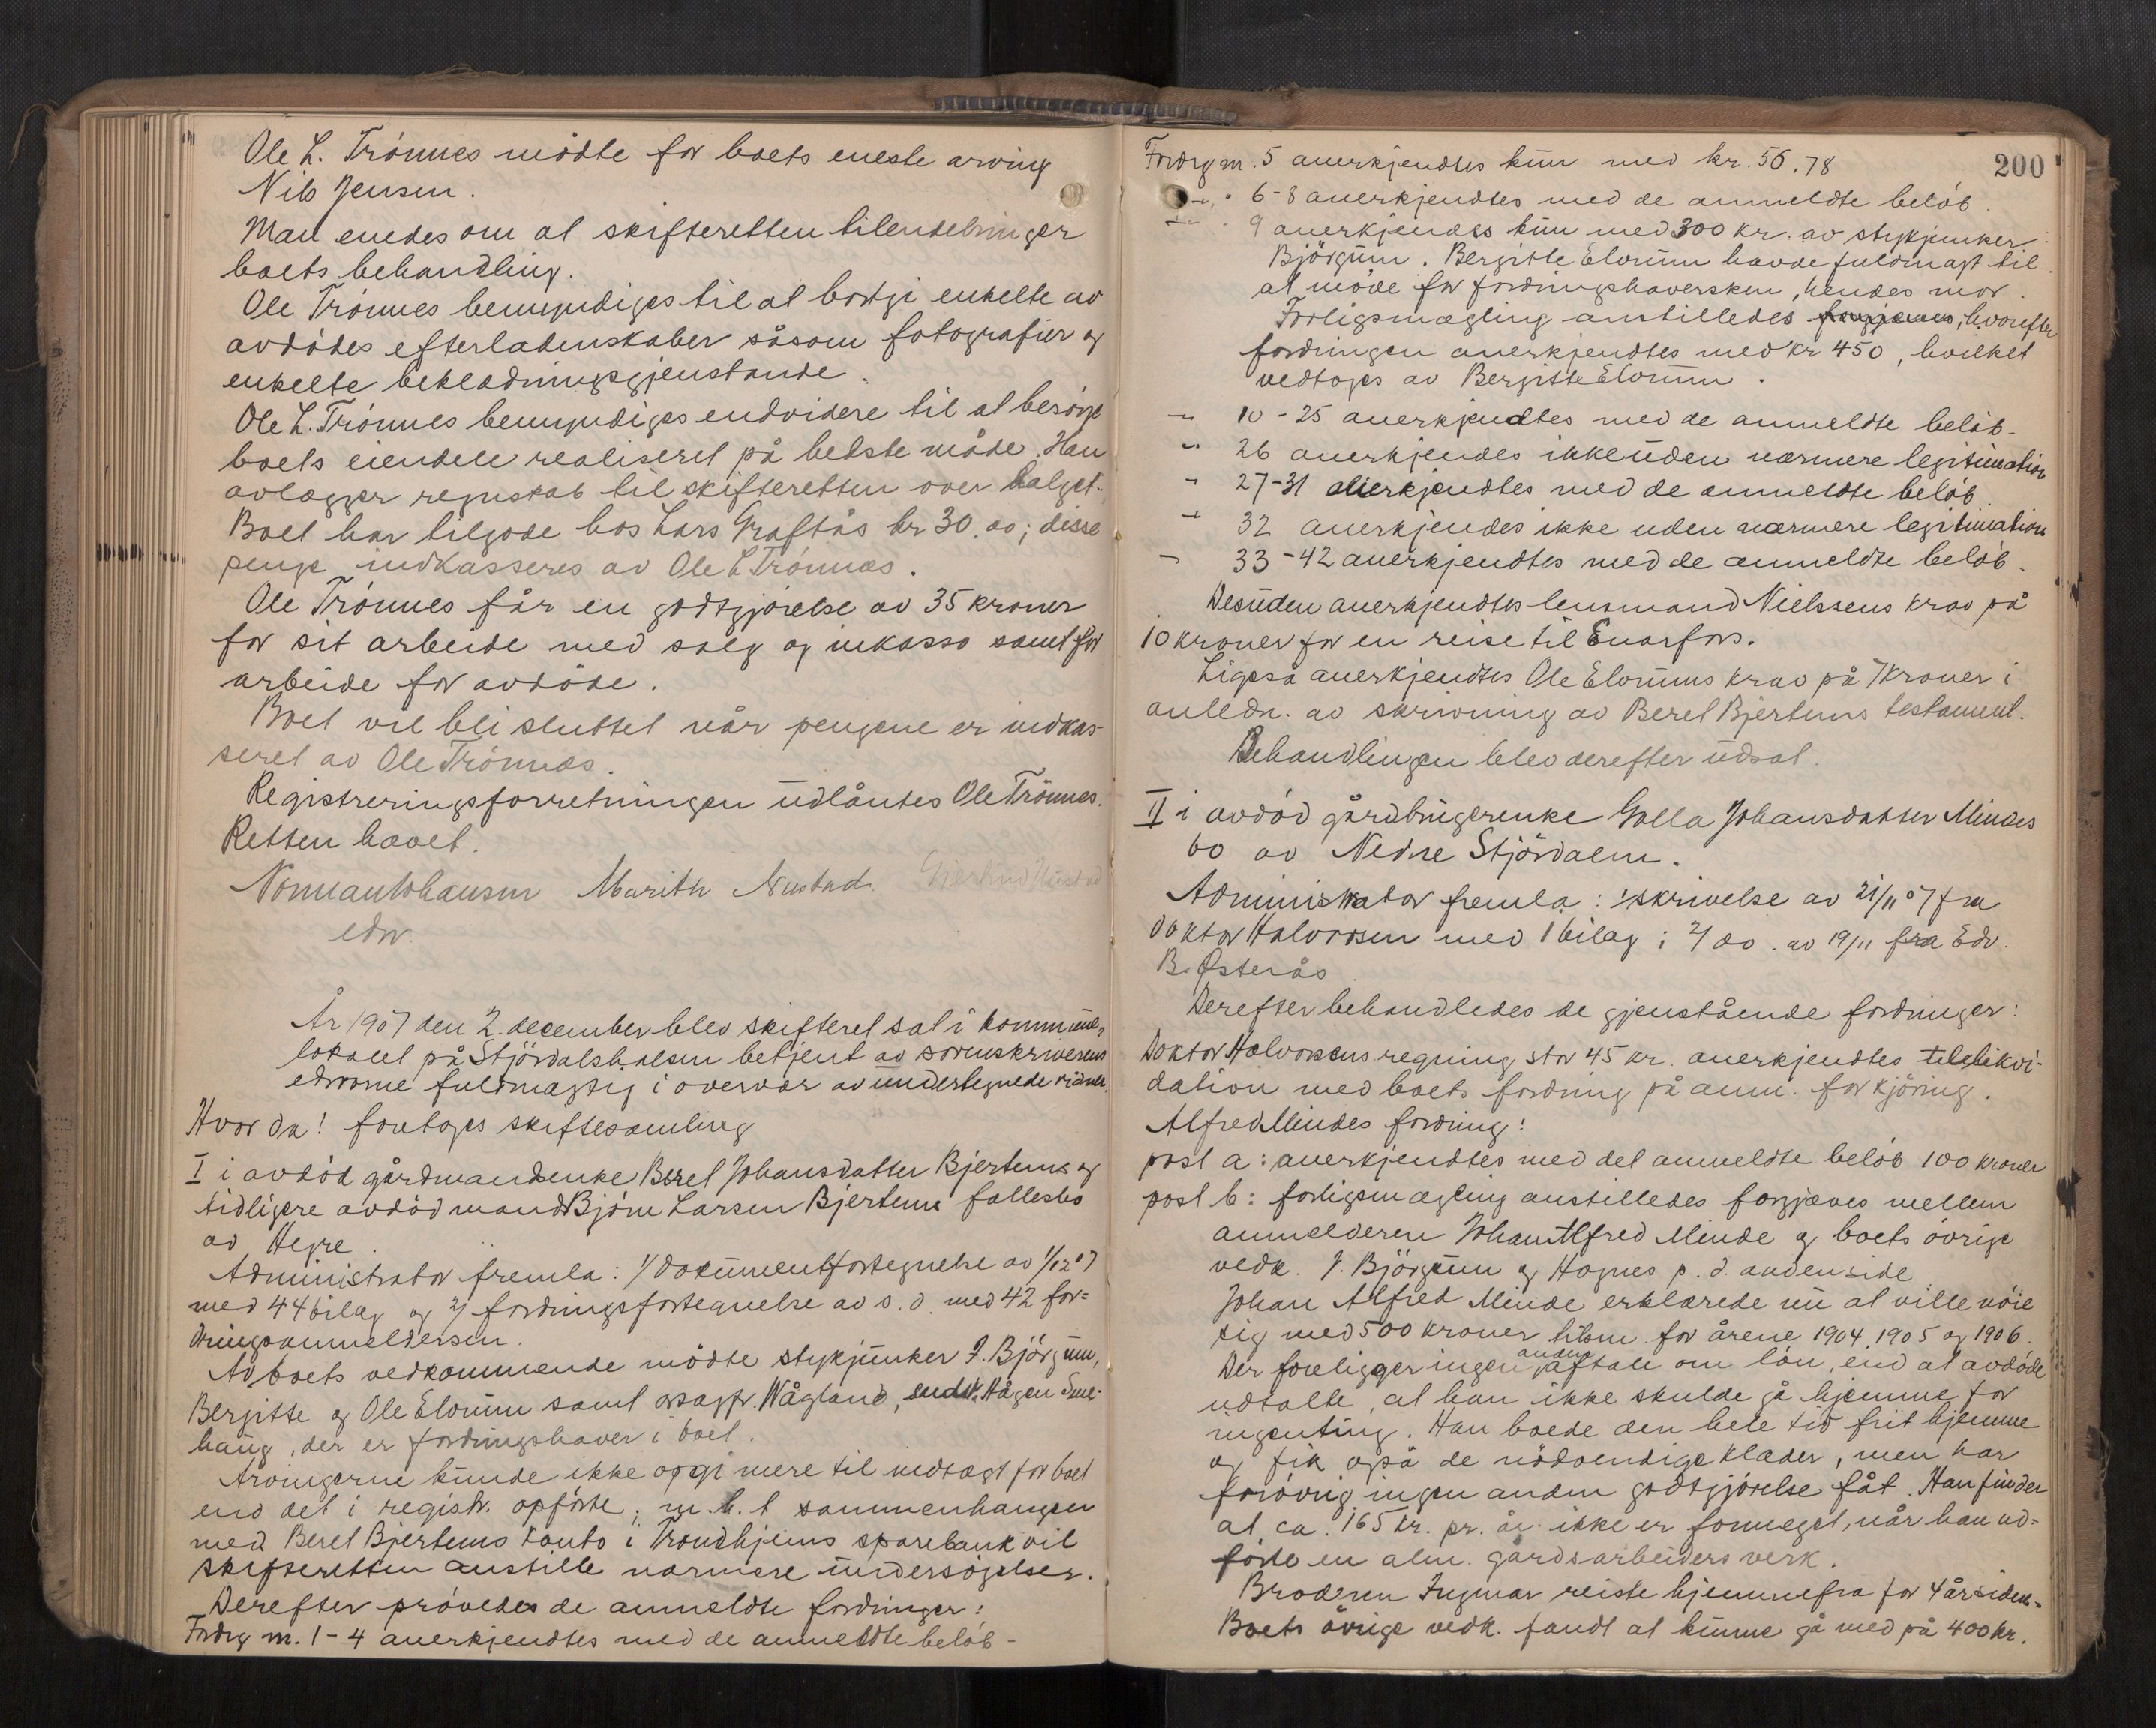 Ole L. Trönnes mödte for boets eneste arving
Nils Jensen.
Man enedes om at skifteretten tilendebringer
boets behandling.
Ole Trönnes bemyndiges til at bortgi enkelte av
avdödes efterladenskaber såsom fotografier og
enkelte beklædningsgjenstande.
Ole L. Trönnes bemyndiges endvidere til at besörge
boets eiendele realiseret på bedste måde. Han
avlægger regnskab til skifteretten over salget.
Boet har tilgode hos Lars Graftås kr 30.00; disse
penge indkasseres av Ole L Trönnes.
Ole Trönnes får en godtgjörelse av 35 kroner
for sit arbeide med salg og inkasso samt for
arbeide for avdöde.
Boet vil bli sluttet når pengene er indkas-
seret av Ole Trönnes.
Registreringsforretningen udlåntes Ole Trönnes.
Retten hævet.
Norman Johansen Marith Nustad
edsv.
År 1907 den 2. december blev skifteret sat i kommune-
lokalet på Stjördalshalsen betjent av sorenskriverens
edsvorne fuldmægtig i overvær av undertegnede vidner.
Hvorda! foretoges skiftesamling
I i avdöd gårdmandsenke Beret Johansdatter Bjertems og
tidligere avdöd mand Björn Larsen Bjertems fællesbo
av Hegre.
Administrator fremla: 1/ dokumentfortegnelse av 1/12 07
med 44 bilag og 2/ fordringsfortegnelse av s. d. med 42 for-
dringsanmeldelser.
Av boets vedkommende mödte stykjunker J. Björgum,
Bergitte og Ole Elvrum samt o.sagf. Wågland, endv. Hågen Sme-
haug, der er fordringshaver i boet.
Arvingerne kunde ikke opgi mere til indtægt for boet
end det i registr. opförte; m. h. t sammenhængen
med Beret Bjertems konto i Trondhjems sparebank vil
skifteretten anstille nærmere undersögelser.
Derefter prövedes de anmeldte fordringer:
Fordrg nr. 1-4 anerkjendtes med de anmeldte belöb-
200
Fordrg nr. 5 anerkjendtes kun med kr. 56.78
-"- " 6-8 anerkjendtes med de anmeldte belöb.
-"- " 9 anerkjendes kun med 300 kr. av stykjunker
Björgum. Bergitte Elvrum havde fuldmagt til
at möde for fordringshaversken, hendes mor.
Forligsmægling anstilledes forgjæves, hvorefter
fordringen anerkjendtes med kr 450, hvilket
vedtoges av Bergitte Elvrum.
-"- 10-25 anerkjendtes med de anmeldte belöb-
-"- 26 anerkjendes ikke uden nærmere legitimation
-"- 27-31 anerkjendtes med de anmeldte belöb.
-"- 32 anerkjendes ikke uden nærmere legitimation
-"- 33-42 anerkjendtes med de anmeldte belöb.
Desuden anerkjendtes lensmand Nielssens krav på
10 kroner for en reise til Enarfors.
Ligeså anerkjendtes Ole Elvrums krav på 7 kroner i
anledn. av skrivning av Beret Bjertems testament.
Behandlingen blev derefter udsat.
II i avdöd gårdbrugerenke Golla Johansdatter Mindes
bo av Nedre Stjördalen.
Administrator fremla: 1/ skrivelse av 21/11 07 fra
doktor Halvorsen med 1 bilag; 2/ do. av 19/11 fra Edv.
B. Østerås
Derefter behandledes de gjenstående fordringer:
Doktor Halvorsens regning stor 45 kr. anerkjendtes til likvi-
dation med boets fordring på anm. for kjöring.
Alfred Mindes fordring:
post a: anerkjendtes med det anmeldte belöb 100 kroner
post b: forligsmægling anstilledes forgjæves mellem
anmelderen Johan Alfred Minde og boets övrige
vedk. J. Björgum og Hognes p. d. anden side
Johan Alfred Minde erklærede nu at ville nöie
sig med 500 kroner tilsm. for årene 1904, 1905 og 1906.
Der foreligger ingen anden aftale om lön, end at avdöde
udtalte, at han ikke skulde gå hjemme for
ingenting. Han boede den hele tid frit hjemme
og fik også de nödvendige klæder, men har
forövrig ingen anden godtgjörelse fåt. Han finder
at ca. 165 kr. pr. år ikke er formeget, når han ud-
förte en alm. gårdsarbeiders verk.
Broderen Ingmar reiste hjemmefra for 4 år siden-
Boets övrige vedk. fandt at kunne gå med på 400 kr.